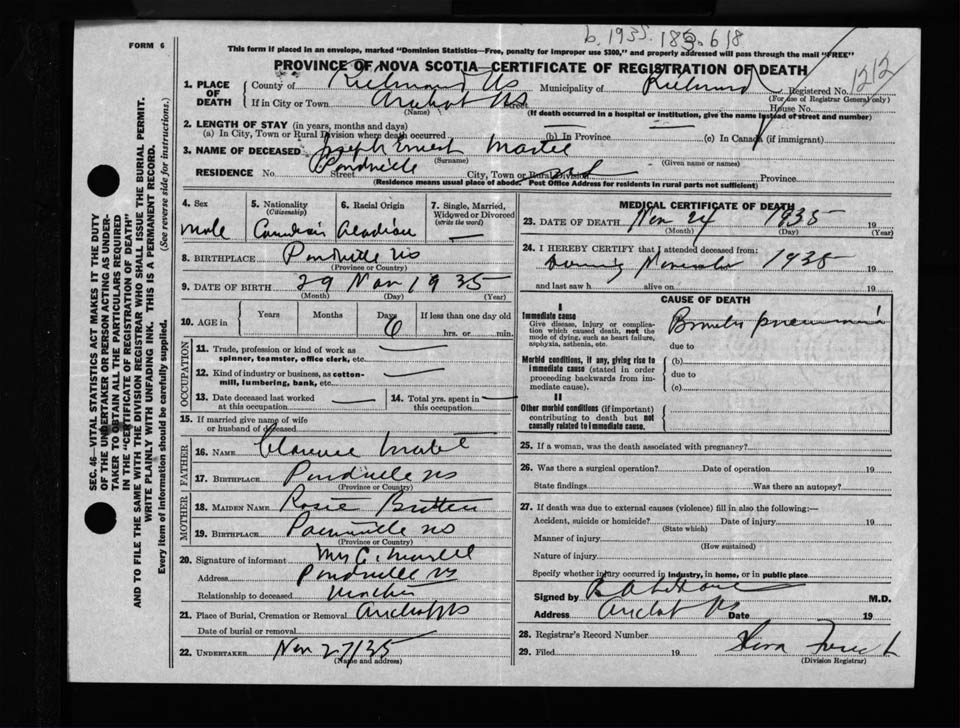 b. 1935. 185 618
FORM 6
This form if placed in an envelope, marked "Dominion Statistics—Free, penalty for improper use $300," and properly addressed will pass through the mail "FREE"
PROVINCE OF NOVA SCOTIA—CERTIFICATE OF REGISTRATION OF DEATH
1. PLACE OF DEATH
County of Richmond NS Municipality of Richmond Registered No. 1212
(For use of Registrar General only)
If in City or Town Arichat NS Street House No.
(Name) (If death occurred in a hospital or institution, give the name instead of street and number)
2. LENGTH OF STAY (in years, months and days)
(a) In City, Town or Rural Division where death occurred (b) In Province (c) In Canada (if immigrant)
3. NAME OF DECEASED Joseph Ernest Martel
(Surname) (Given name or names)
RESIDENCE No. Pondville Street City, Town or Rural Division Province
(Residence means usual place of abode. Post Office Address for residents in rural parts not sufficient)
4. Sex
male
5. Nationality
(Citizenship)
Canadian
6. Racial Origin
Acadian
7. Single, Married, Widowed or Divorced
(write the word)
8. BIRTHPLACE Pondville NS
(Province or Country)
9. DATE OF BIRTH 29 Nov 1935
(Month) (Day) (Year)
10. AGE in Years Months Days 6 If less than one day old
hrs. or min.
OCCUPATION
11. Trade, profession or kind of work as spinner, teamster, office clerk, etc.
12. Kind of industry or business, as cotton-mill, lumbering, bank, etc.
13. Date deceased last worked at this occupation
14. Total yrs. spent in this occupation
15. If married give name of wife or husband of deceased
FATHER
16. NAME Clarence Martel
17. BIRTHPLACE Pondville NS
(Province or Country)
MOTHER
18. MAIDEN NAME Rosie Britten
19. BIRTHPLACE NS
(Province or Country)
20. Signature of informant Mrs C. Martell
Address Pondville NS
Relationship to deceased Mother
21. Place of Burial, Cremation or Removal Arichat NS
Date of burial or removal
22. UNDERTAKER Nov 27/35
(Name and address)
MEDICAL CERTIFICATE OF DEATH
23. DATE OF DEATH Nov 24 1935 19
(Month) (Day) (Year)
24. I HEREBY CERTIFY that I attended deceased from:
During November 1935 19
and last saw h alive on 19
CAUSE OF DEATH
I
Immediate cause
Give disease, injury or complication which caused death, not the mode of dying, such as heart failure, asphyxia, asthenia, etc.
Broncho pneumonia
due to
Morbid conditions, if any, giving rise to immediate cause (stated in order proceeding backwards from immediate cause).
(b)
due to
(c)
II
Other morbid conditions (if important) contributing to death but not causally related to immediate cause.
25. If a woman, was the death associated with pregnancy?
26. Was there a surgical operation? Date of operation 19
State findings Was there an autopsy?
27. If death was due to external causes (violence) fill in also the following:—
Accident, suicide or homicide? Date of injury 19
(State which)
Manner of injury
(How sustained)
Nature of injury
Specify whether injury occurred in industry, in home, or in public place
Signed by M.D.
Address Arichat NS Date 19
28. Registrar's Record Number
29. Filed 19
(Division Registrar)
SEC. 46—VITAL STATISTICS ACT MAKES IT THE DUTY
OF THE UNDERTAKER OR PERSON ACTING AS UNDER-
TAKER TO OBTAIN ALL THE PARTICULARS REQUIRED
IN THE "CERTIFICATE OF REGISTRATION OF DEATH"
AND TO FILE THE SAME WITH THE DIVISION REGISTRAR WHO SHALL ISSUE THE BURIAL PERMIT.
WRITE PLAINLY WITH UNFADING INK. THIS IS A PERMANENT RECORD.
Every item of information should be carefully supplied. (See reverse side for instructions.)